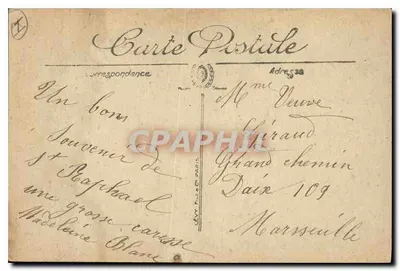 Carte Postale
Correspondance
Adresse
Un bons
Souvenir de
St Raphael
une grosse caresse
Madeleine Blanc
Mme Veuve
Giraud
Grand chemin
Daix 109
Marseille
CPAPHIL.com